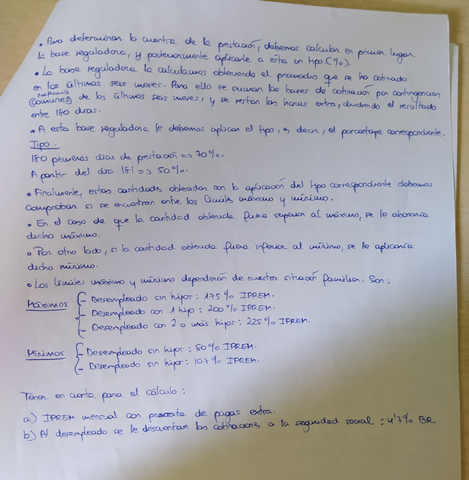 • Para determinar la cuantía de la prestación, debemos calcular en primer lugar
la base reguladora, y posteriormente aplicarle a esta un tipo (%).
• La base reguladora la calculamos obteniendo el promedio que se ha cotizado
en los últimos seis meses. Para ello se suman las bases de cotización por contingencias
comunes de los últimos seis meses, y se restan las horas extra, dividiendo el resultado
entre 180 días.
• A esta base reguladora le debemos aplicar el tipo, es decir, el porcentaje correspondiente.
Tipo.
180 primeros días de prestación => 70%.
A partir del día 181 => 50%.
• Finalmente, estas cantidades obtenidas con la aplicación del tipo correspondiente debemos
comprobar si se encuentran entre los límites máximo y mínimo.
• En el caso de que la cantidad obtenida fuera superior al máximo, se le abonaría
dicho máximo.
• Por otro lado, si la cantidad obtenida fuera inferior al mínimo, se le aplicaría
dicho mínimo.
• Los límites máximo y mínimo dependerán de nuestra situación familiar. Son:
Máximos
- Desempleado sin hijos: 175% IPREM.
- Desempleado con 1 hijo: 200% IPREM.
- Desempleado con 2 o más hijos: 225% IPREM.
Mínimos
- Desempleado sin hijos: 80% IPREM.
- Desempleado sin hijos: 107% IPREM.
Tener en cuenta para el cálculo:
a) IPREM mensual con prorrata de pagas extra.
b) Al desempleado se le descuentan las cotizaciones a la seguridad social: 4'7% BR